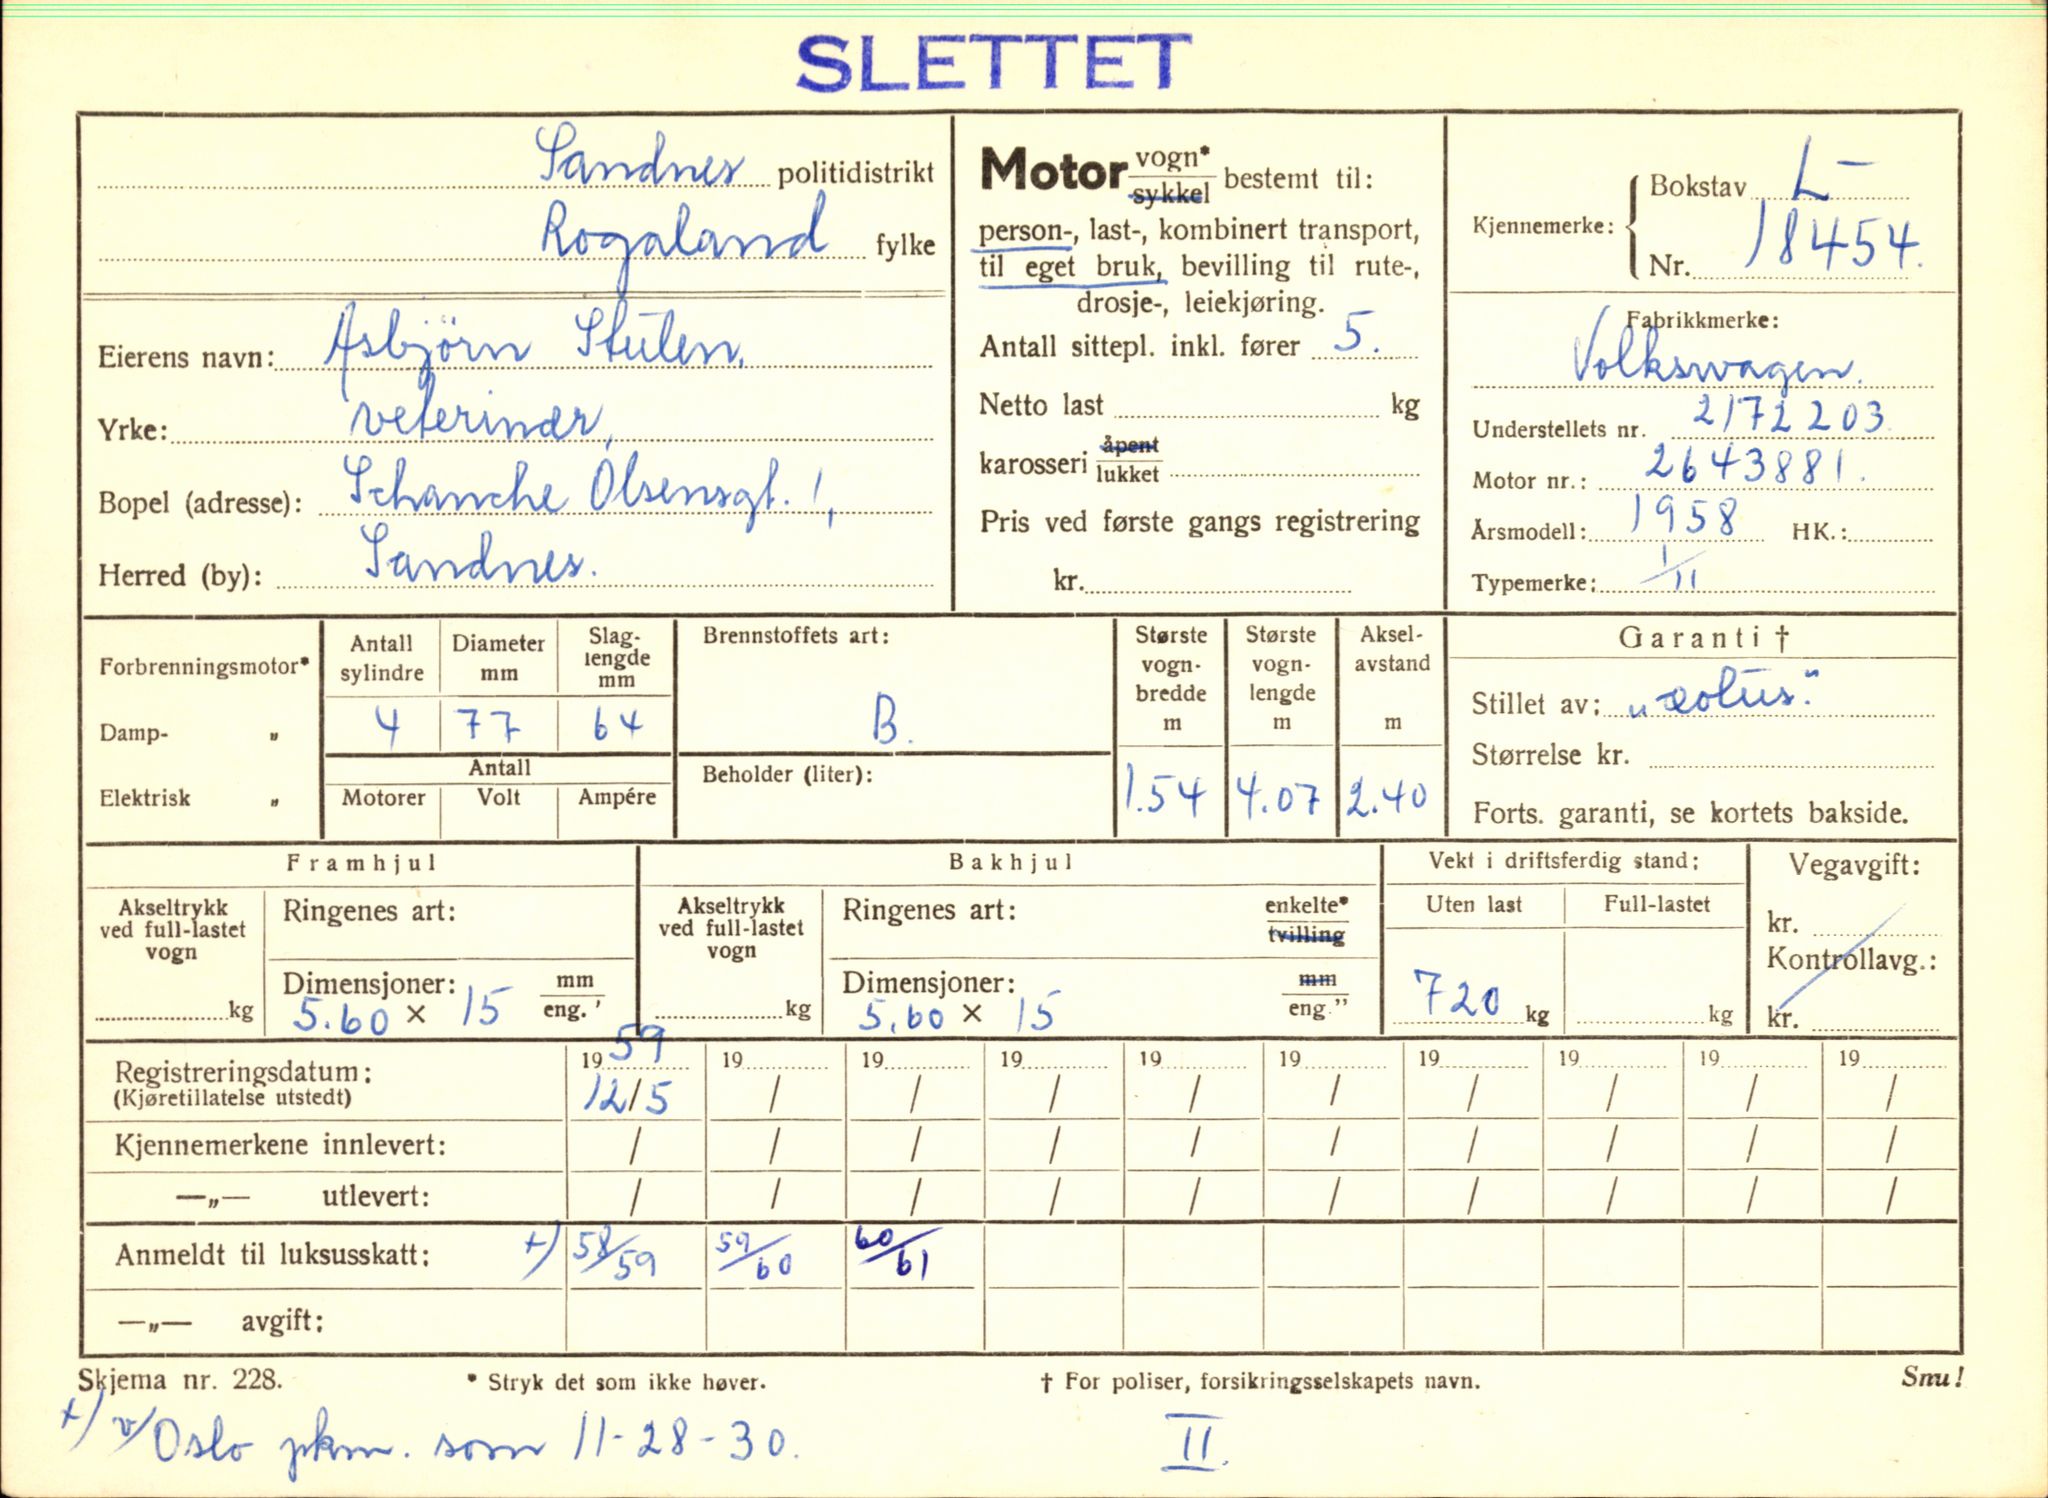 SLETTET
Sandnes politidistrikt
Rogaland fylke
Eierens navn: Asbjörn Stulen,
Yrke: veterinær,
Bopel (adresse): Schanche Olsensgt. 1,
Herred (by): Sandnes.
Motor vogn* / sykkel bestemt til:
person-, last-, kombinert transport,
til eget bruk, bevilling til rute-,
drosje-, leiekjøring.
Antall sittepl. inkl. fører 5.
Netto last kg
karosseri åpent / lukket
Pris ved første gangs registrering
kr.
Kjennemerke: { Bokstav L-
Nr. 18454.
Fabrikkmerke:
Volkswagen.
Understellets nr. 2172203
Motor nr.: 2643881.
Årsmodell: 1958 HK.:
Typemerke: 1/11
Forbrenningsmotor*
Damp- „
Elektrisk „
Antall sylindre
Diameter mm
Slag-lengde mm
4 77 64
Antall
Motorer Volt Ampére
Brennstoffets art:
B.
Beholder (liter):
Største vogn-bredde m
Største vogn-lengde m
Aksel-avstand m
1.54 4.07 2.40
Garanti †
Stillet av: „æolus."
Størrelse kr.
Forts. garanti, se kortets bakside.
Framhjul
Akseltrykk ved full-lastet vogn
kg
Ringenes art:
Dimensjoner: mm / eng.'
5.60 × 15
Bakhjul
Akseltrykk ved full-lastet vogn
kg
Ringenes art: enkelte* / tvilling
Dimensjoner: mm / eng."
5.60 × 15
Vekt i driftsferdig stand:
Uten last Full-lastet
720 kg kg
Vegavgift:
kr.
Kontrollavg.:
kr.
Registreringsdatum: 1959 19 19 19 19 19 19 19 19 19
(Kjøretillatelse utstedt) 12/5 / / / / / / / / /
Kjennemerkene innlevert: / / / / / / / / / /
—„— utlevert: / / / / / / / / / /
Anmeldt til luksusskatt: +) 58/59 59/60 60/61
—„— avgift:
Skjema nr. 228. * Stryk det som ikke høver. † For poliser, forsikringsselskapets navn. Snu!
+) v/Oslo pkm. som 11-28-30. II.